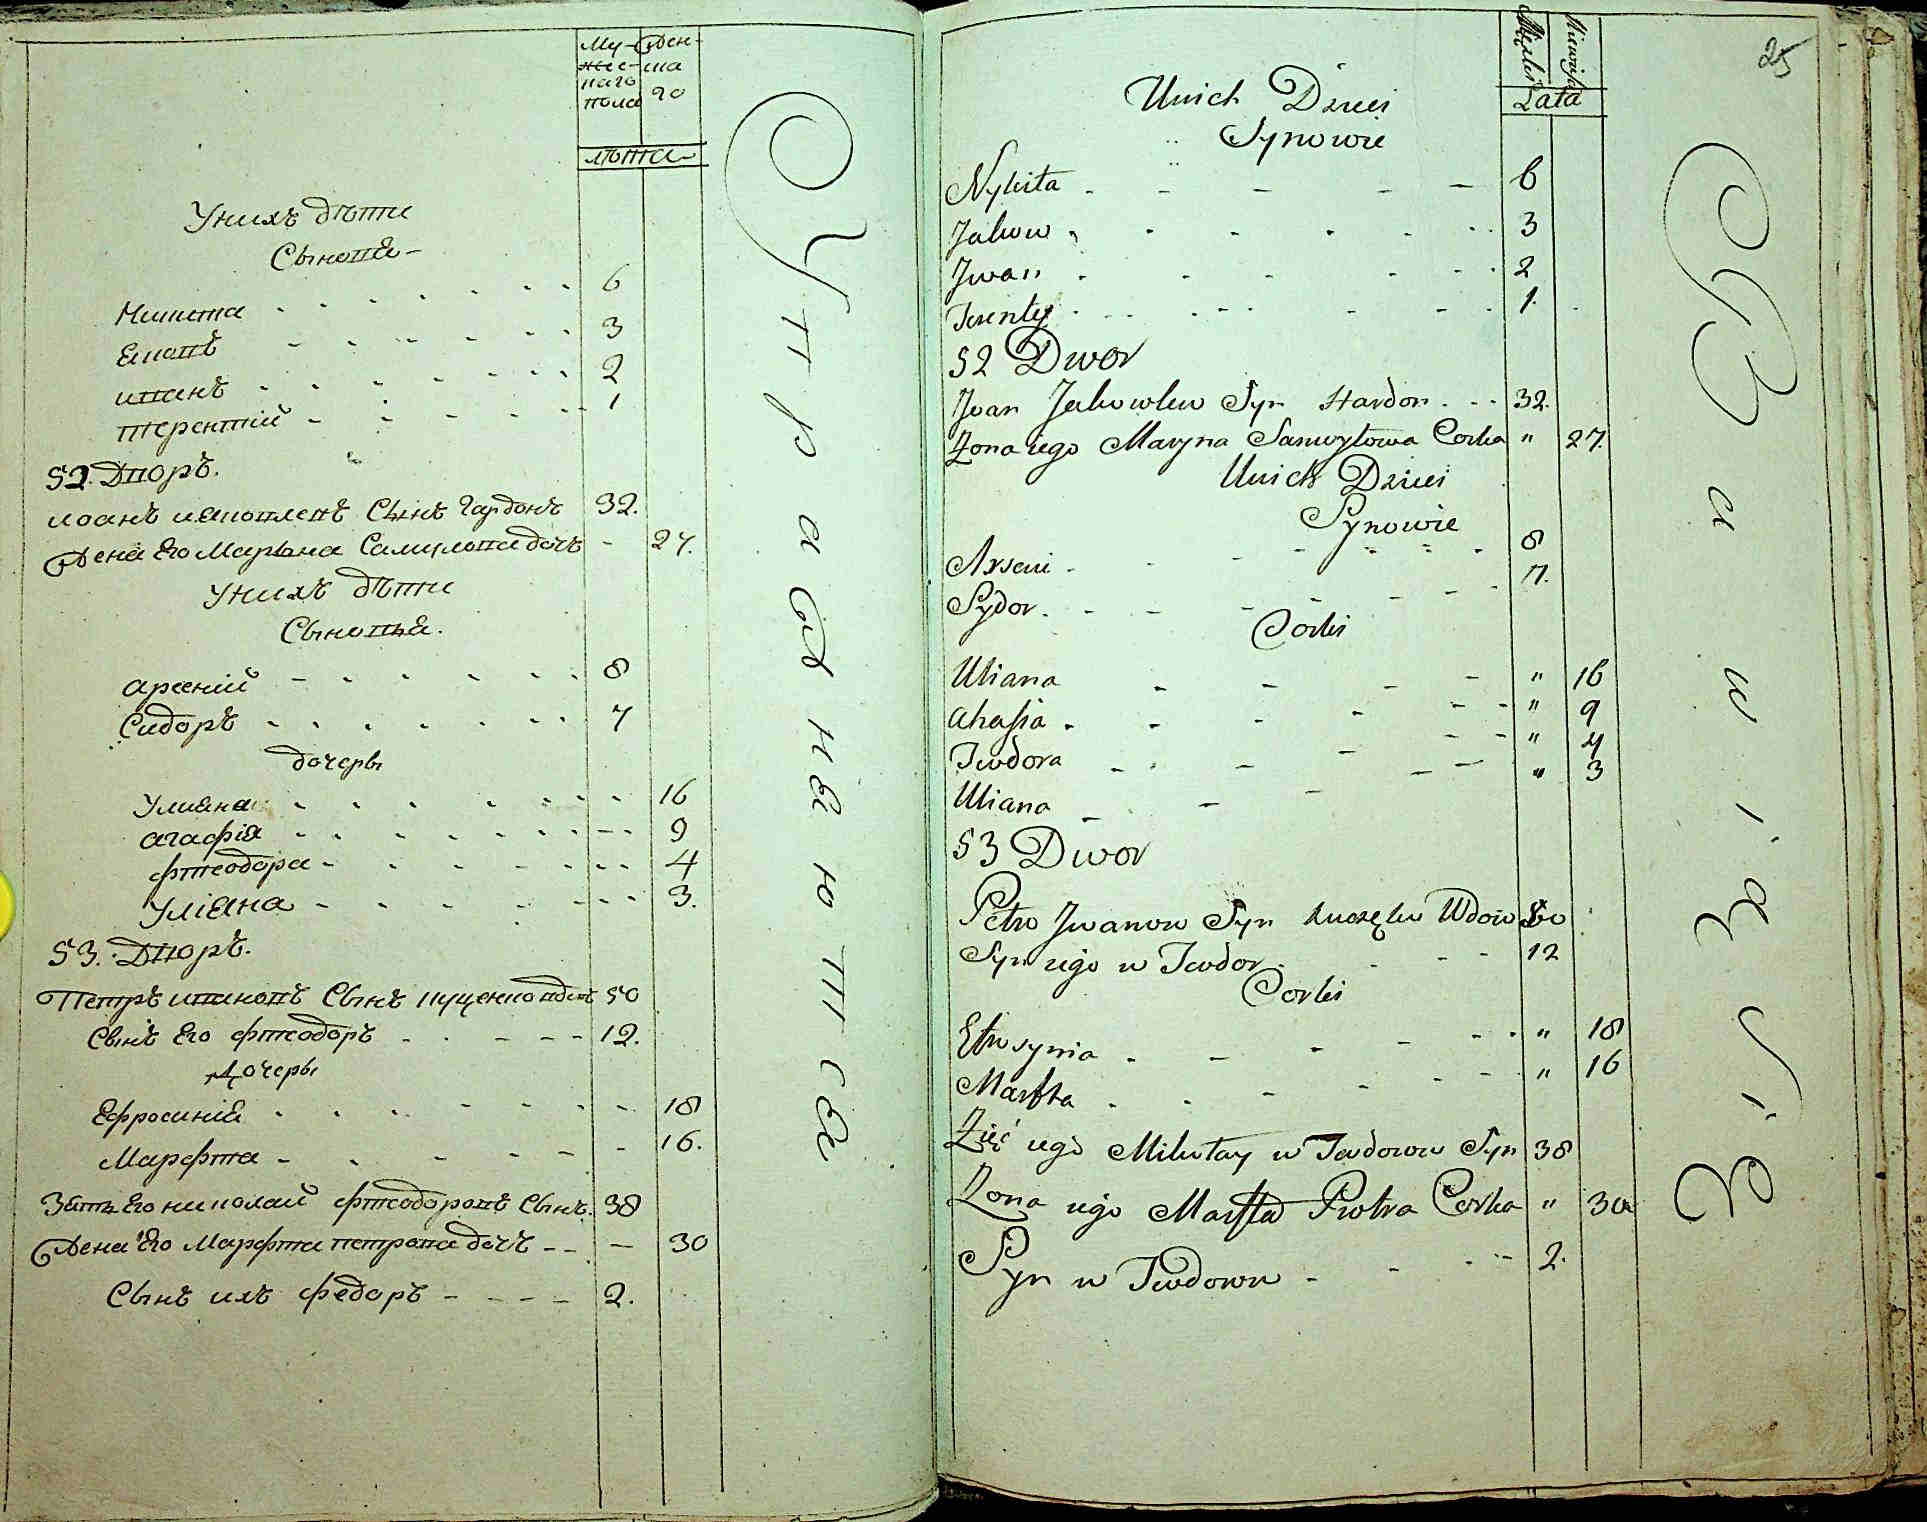 Му-
жес-
наго
пола
Жен-
ска
го
лѣта
Унихъ дѣти
Сыновя
Никита 6
Яковъ 3
иванъ 2
терентій 1
52. Дворъ.
иоанъ иаковлевъ Сынъ Гардонъ 32.
Жена Его Марьяна Самуилова дочь - 27.
Унихъ дѣти
Сыновья.
арсеній 8
Сидоръ 7
дочеры
Улияна 16
агафія 9
фтеодора 4
Уліяна 3.
53. Дворъ.
Петръ ивановъ Сынъ куценко вдовъ 50
Сынъ Его фтеодоръ 12.
Дочеры
Ефросинія 18
Марфта 16.
Зять Его николай фтеодоровъ Сынъ. 38
Жена Его Марфта петрова дочъ - 30
Сынъ ихъ федоръ 2.
У п р а в н я ю т ся
25
Lata
Unich Dzieci
Synowie
Nykita 6
Jakow 3
Jwan 2
Terenty 1.
52 Dwor
Jvan Jakowlew Syn Hardon 32.
Żona iego Maryna Samoyłowa Corka " 27.
Unich Dzieci
Synowie
Arseni 8
Sydor. 7.
Corki
Uliana " 16
Ahafia " 9
Twdora " 4
Uliana " 3
53 Dwor
Petro Jwanow Syn Kuczęko Wdow 50
Syn iego w Twdor 12
Corki
Efrosynia " 18
Marfta " 16
Zięć iego Mikołay w Twdorow Syn 38
Żona iego Marfta Piotra Corka " 30
Syn w Twdorow 2.